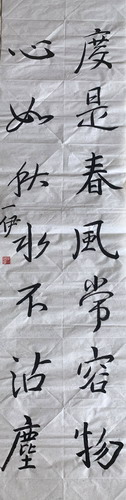 度是春風常容物
心如秋水不沾塵
一伊